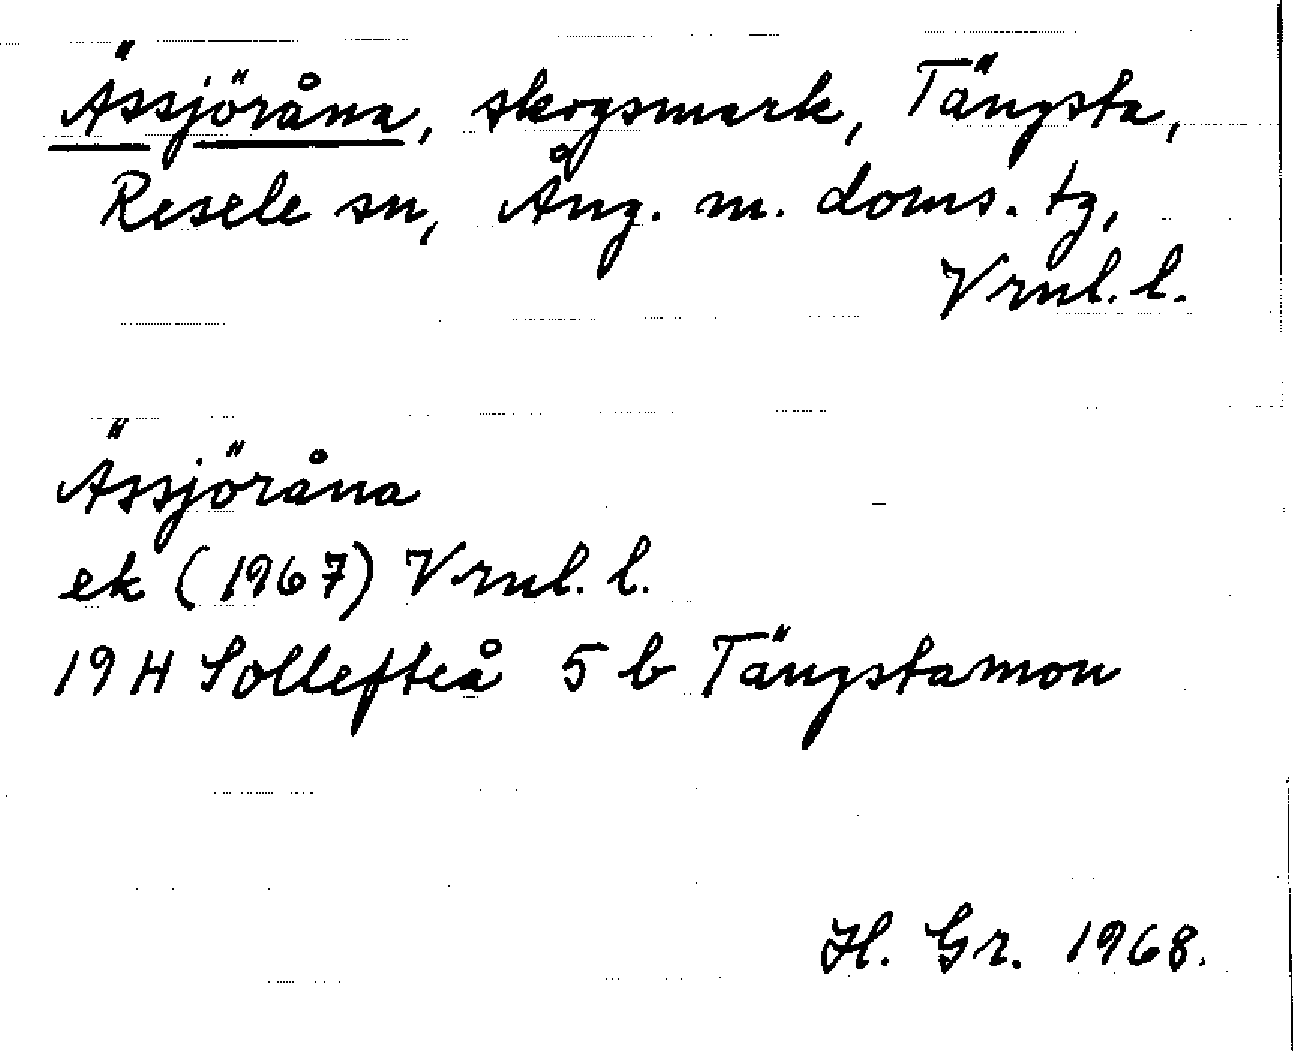 Ässjöråna, skogsmark, Tängsta,
Resele sn, Ång. m. doms. tg,
Vrnl. l.
Ässjöråna
ek (1967) Vrnl. l.
19 H Sollefteå 5 b Tängstamon
H. Gr. 1968.